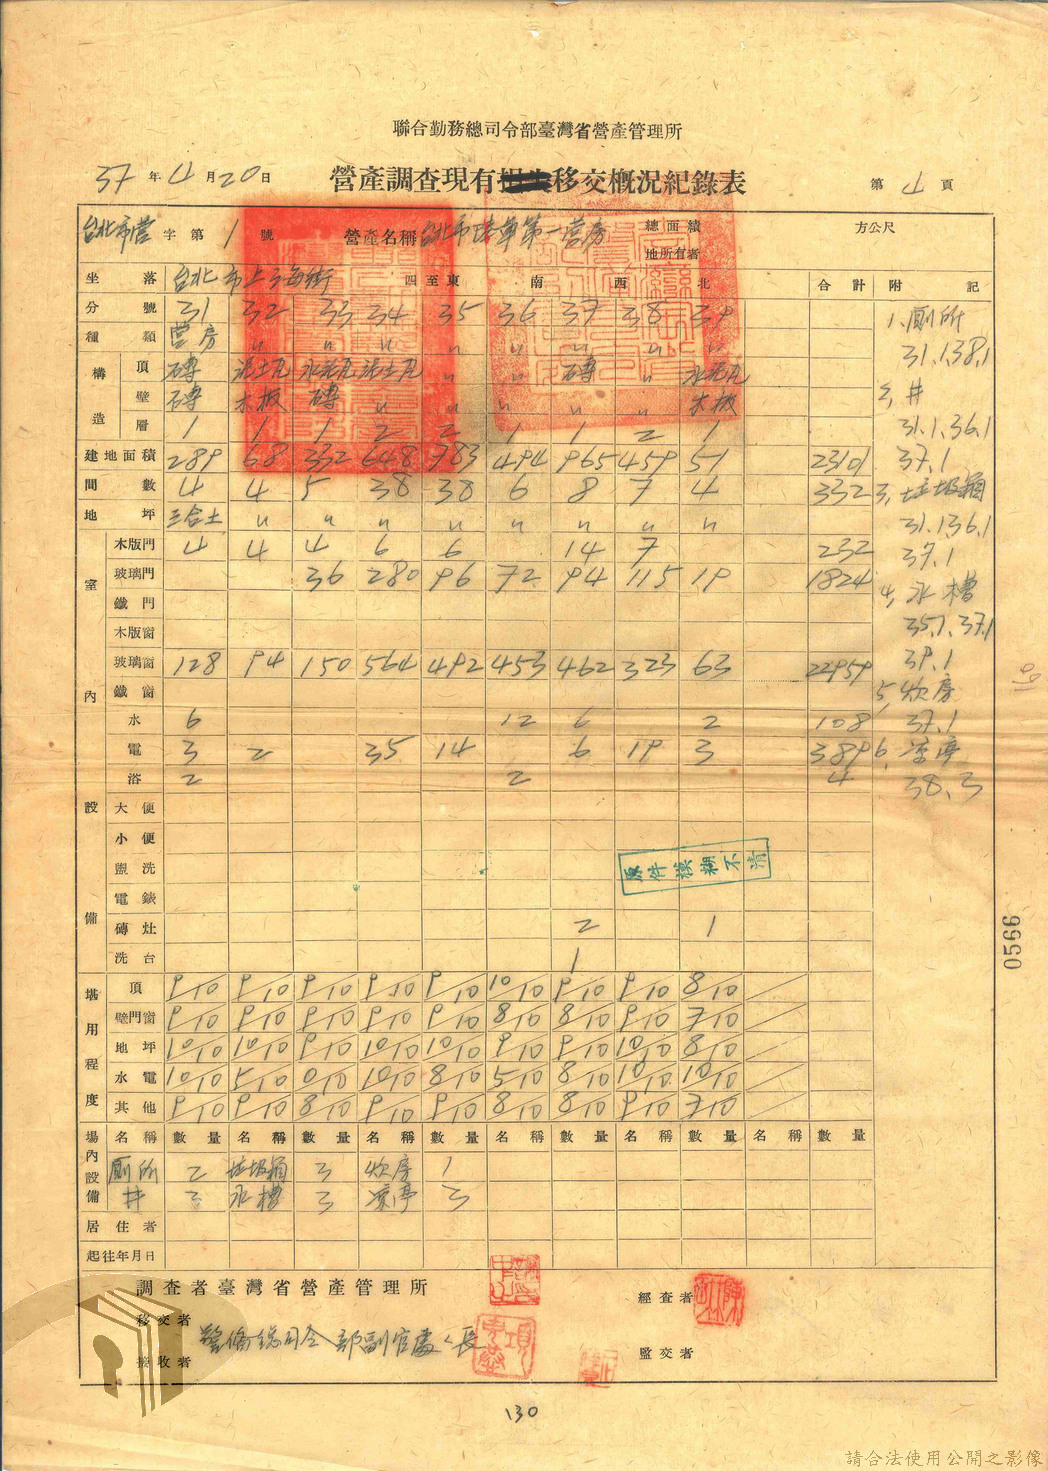 聯合勤務總司令部臺灣省營產管理所
37年4月20日
營產調查現有移交概況紀錄表
第4頁
台北市營字第1號 營產名稱 台北市陸軍第一營房 總面積 方公尺
地所有者
坐落 台北市上海街 四至東 南 西 北 合計 附記
分號 31 32 33 34 35 36 37 38 39
種類 營房 〃 〃 〃 〃 〃 〃 〃 〃
構造
頂 磚 泥土瓦 水泥瓦 泥土瓦 〃 〃 磚 〃 水泥瓦
壁 磚 木板 磚 〃 〃 〃 〃 〃 木板
層 1 1 1 2 2 1 1 2 1
建地面積 289 68 332 648 783 494 965 459 51 23101
間數 4 4 5 38 38 6 8 7 4 332
地坪 三合土 〃 〃 〃 〃 〃 〃 〃 〃
室內設備
木版門 4 4 4 6 6 14 7 232
玻璃門 36 280 96 72 94 115 19 1824
鐵門
木版窗
玻璃窗 128 94 150 564 492 453 462 323 63 22959
鐵窗
水 6 12 6 2 108
電 3 2 35 14 6 19 3 389
浴 2 2 4
大便
小便
盥洗
電錶
磚灶 2 1
洗台 1
堪用程度
頂 9/10 9/10 9/10 9/10 9/10 10/10 9/10 9/10 8/10
壁門窗 9/10 9/10 9/10 9/10 9/10 8/10 8/10 9/10 7/10
地坪 10/10 10/10 9/10 10/10 10/10 9/10 9/10 10/10 8/10
水電 10/10 5/10 0/10 10/10 8/10 5/10 8/10 10/10 10/10
其他 9/10 9/10 8/10 9/10 9/10 8/10 8/10 9/10 7/10
1、廁所
31.1 38.1
2、井
31.1 36.1
37.1
3、垃圾箱
31.1 36.1
37.1
4、水槽
35.1 37.1
39.1
5、炊房
37.1
6、涼亭
38.3
原件模糊不清
場內設備
名稱 數量 名稱 數量 名稱 數量 名稱 數量 名稱 數量 名稱 數量
廁所 2 垃圾箱 3 炊房 1
井 3 水槽 3 涼亭 3
居住者
起往年月日
調查者臺灣省營產管理所
經查者
移交者
警備總司令部副官處處長
接收者
監交者
130
0566
請合法使用公開之影像